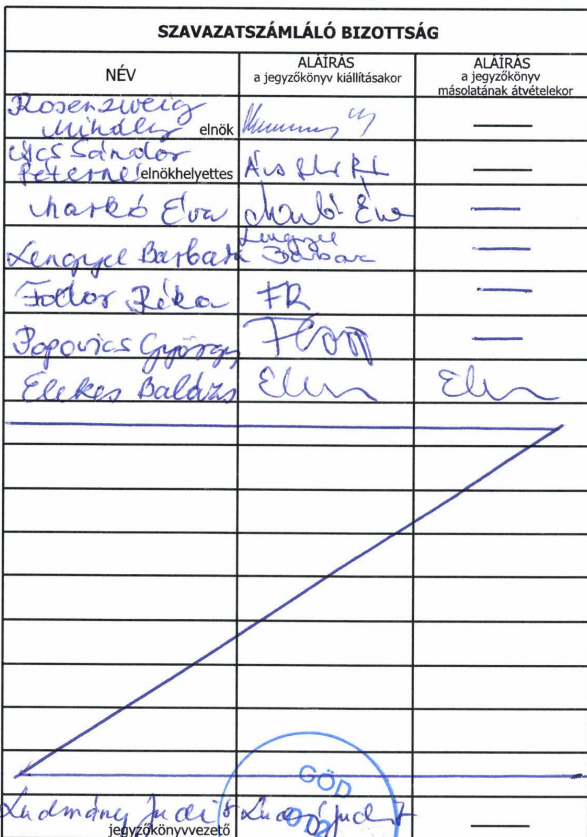 SZAVAZATSZÁMLÁLÓ BIZOTTSÁG
NÉV
ALÁÍRÁS
a jegyzőkönyv kiállításakor
ALÁÍRÁS
a jegyzőkönyv
másolatának átvételekor
Rosenzweig
Mihály elnök
Ács Sándor
Péterné elnökhelyettes
Markó Éva Markó Éva
Lengyel Barbara Lengyel
Barbara
Fodor Réka FR
Popovics György
Elekes Balázs
GÖD
Ludmány Judit
jegyzőkönyvvezető